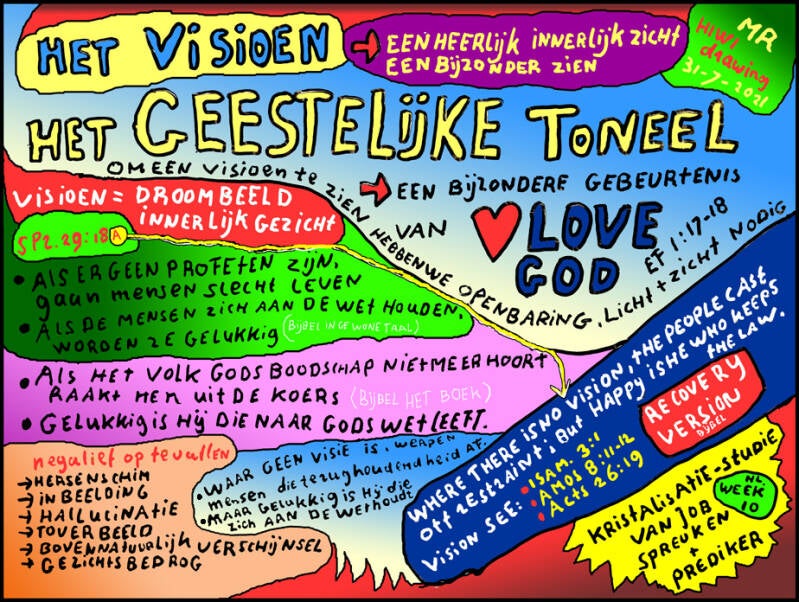 HET VISIOEN
→ EEN HEERLIJK INNERLIJK ZICHT
EEN BIJZONDER ZIEN
MR
HIWI
drawing
31-7-2021
HET GEESTELIJKE TONEEL
OM EEN VISIOEN te ZIEN HEBBEN WE OPENBARING, LICHT + ZICHT NODIG
EF 1:17-18
→ EEN BIJZONDERE GEBEURTENIS
VAN ♥ LOVE
GOD
VISIOEN = DROOMBEELD
INNERLIJK GEZICHT
SPR. 29:18 A
• ALS ER GEEN PROFETEN ZIJN,
gaan mensen slecht leven
• ALS DE MENSEN ZICH AAN DE WET HOUDEN,
WORDEN ZE GELUKKIG (BIJBEL IN GEWONE TAAL)
• ALS HET VOLK GODS BOODSCHAP NIET MEER HOORT
RAAKT MEN UIT DE KOERS (BIJBEL HET BOEK)
• GELUKKIG IS HIJ DIE NAAR GODS WET LEEFT.
negatief op te vatten
→ HERSENSCHIM
→ INBEELDING
→ HALLUCINATIE
→ TOVERBEELD
→ BOVENNATUURLIJK VERSCHIJNSEL
→ GEZICHTSBEDROG
• WAAR GEEN VISIE IS, WERPEN
mensen die terughoudendheid AF.
• MAAR GELUKKIG IS HIJ die
zich AAN DE WET HOUDT
WHERE THERE IS NO VISION, THE PEOPLE CAST
OFF RESTRAINT; BUT HAPPY IS HE WHO KEEPS
THE LAW.
VISION SEE: • 1SAM. 3:1
• AMOS 8:11-12
• ACTS 26:19
RECOVERY
VERSION
BIJBEL
KRISTALISATIE-STUDIE
VAN JOB
SPREUKEN
+
PREDIKER
NL
WEEK
10